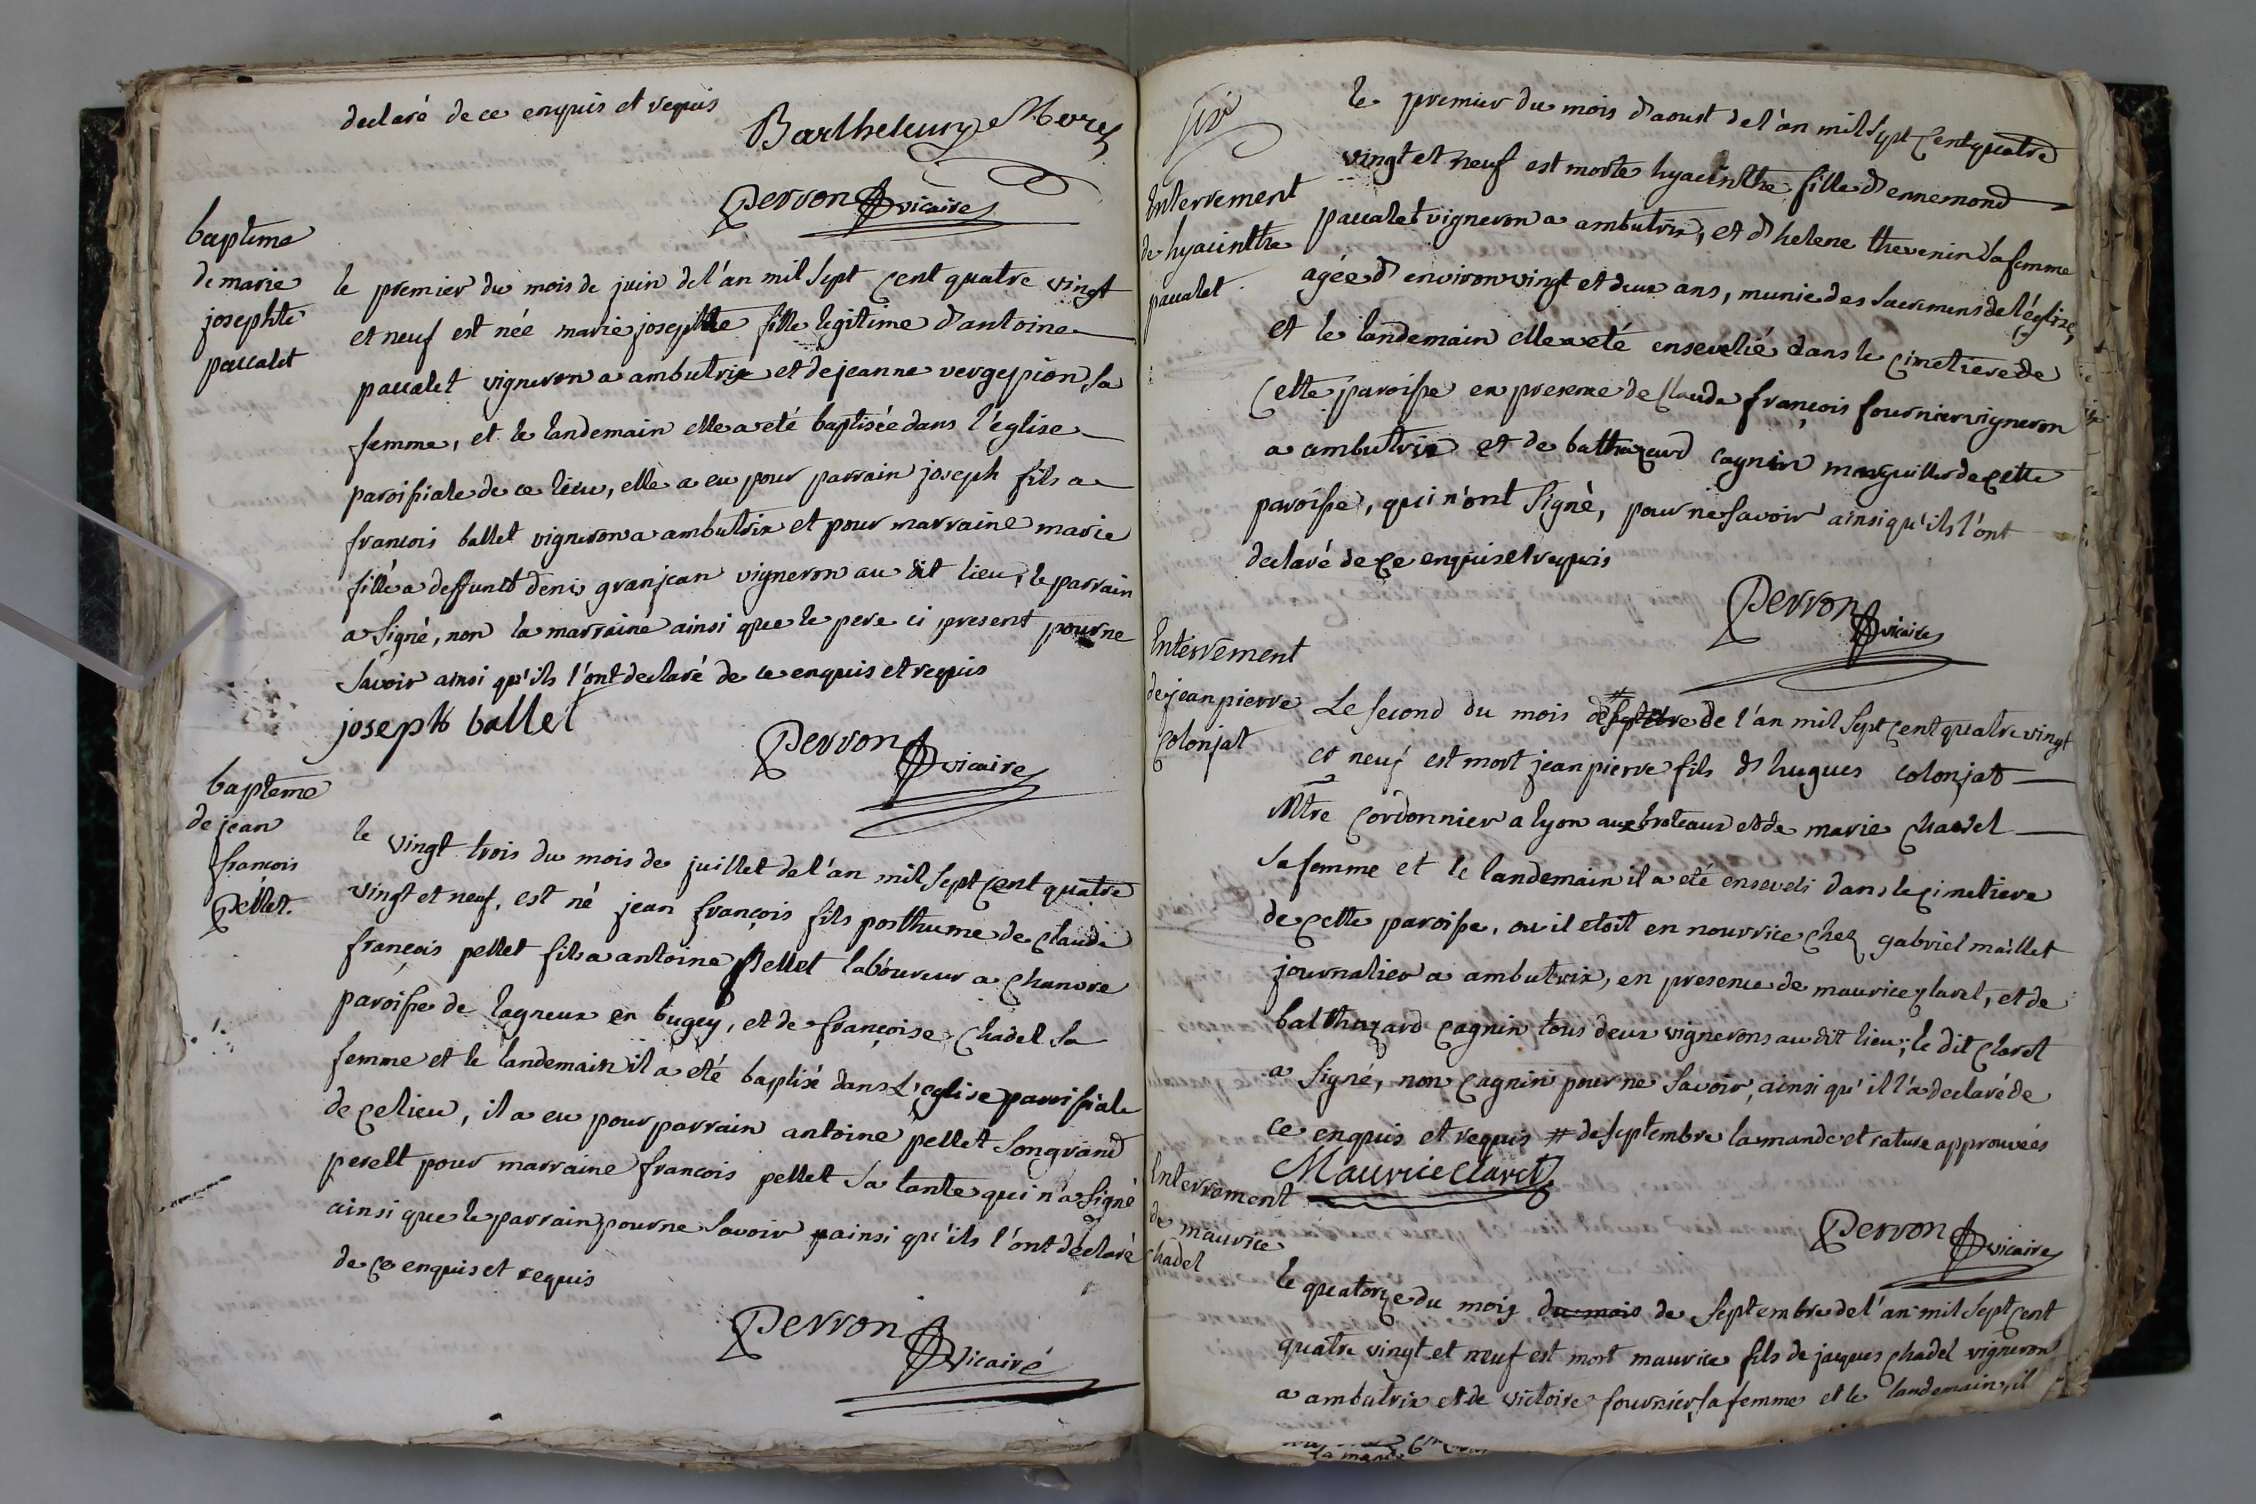 declaré de ce enquis et requis
Barthelemy
Perron vicaire
baptême
de marie
josephte
paccalet
le premier du mois de juin de l'an mil sept cent quatre vingt
et neuf est née marie josephte fille legitime d'antoine
paccalet vigneron a ambutrix et de jeanne vergepion sa
femme, et le landemain elle a eté baptisée dans l'église
paroissiale de ce lieu, elle a eu pour parrain joseph fils a
françois ballet vigneron a ambutrix et pour marraine marie
fille a deffunt denis granjean vigneron au dit lieu, le parrain
a signé, non la marraine ainsi que le pere ci present pour ne
savoir ainsi qu'ils l'ont declaré de ce enquis et requis
joseph ballet
Perron vicaire
bapteme
de jean
francois
Pellet.
le vingt trois du mois de juillet de l'an mil sept cent quatre
vingt et neuf, est né jean françois fils posthume de claude
francois pellet fils a antoine Pellet laboureur a chanvre
paroisse de lagneux en bugey, et de françoise chadel sa
femme et le landemain il a eté baptisé dans l'eglise paroissiale
de ce lieu, il a eu pour parrain antoine pellet son grand
pere et pour marraine francois pellet sa tante qui n'a signé
ainsi que le parrain pour ne savoir ainsi qu'ils l'ont déclaré
de ce enquis et requis
Perron vicaire
six
Enterrement
de hyacinthe
paccalet
le premier du mois d'aoust de l'an mil sept cent quatre
vingt et neuf est morte hyacinthe fille d'ennemond
paccalet vigneron a ambutrix, et d'helene thevenin sa femme
agée d'environ vingt et deux ans, munie des sacremens de l'église,
et le landemain elle a eté ensevelié dans le cimetiere de
cette paroisse en presence de claude françois fournier vigneron
a ambutrix et de balthazard cagnin marguiller de cette
paroisse, qui n'ont signè, pour ne savoir ainsi qu'ils l'ont
declaré de ce enquis et requis
Perron vicaire
Enterrement
de jean pierre
colonjat
Le second du mois # de l'an mil sept cent quatre vingt
et neuf est mort jean pierre fils d'hugues colonjat
Mtre cordonnier a lyon aux broteaux et de marie chadel
sa femme et le landemain il a eté enseveli dans le cimetiere
de cette paroisse, ou il etoit en nourrice chez gabriel maillet
journalier a ambutrix, en presence de maurice claret, et de
balthazard cagnin tous deux vignerons au dit lieu, le dit claret
a signé, non cagnin pour ne savoir, ainsi qu'il l'a declaré de
ce enquis et requis # de septembre la mande et rature approuvées
Maurice Claret
Perron vicaire
Enterrement
de maurice
chadel
le quatorze du mois du mois de septembre de l'an mil sept cent
quatre vingt et neuf est mort maurice fils de jacques chadel vigneron
a ambutrix et de victoire fournier sa femme et le landemain il